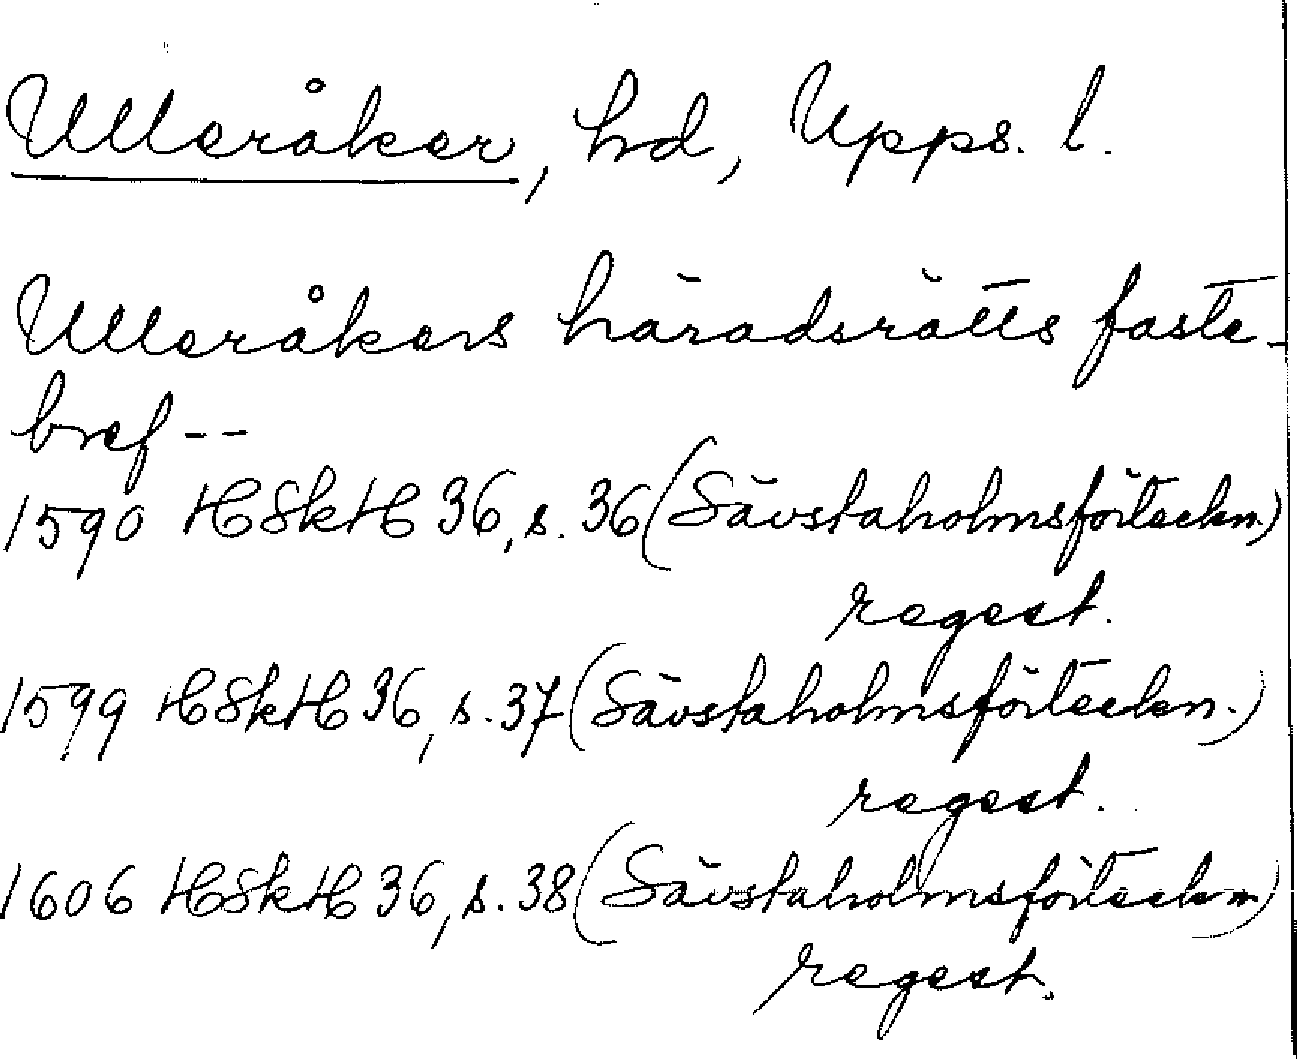 Ulleråker, hd, Upps. l.
Ulleråkers häradsrätts faste-
bref --
1590 HSkH 36, s. 36 (Sävstaholmsförteckn.)
regest.
1599 HSkH 36, s. 37 (Sävstaholmsförteckn.)
regest.
1606 HSkH 36, s. 38 (Sävstaholmsförteckn)
regest.